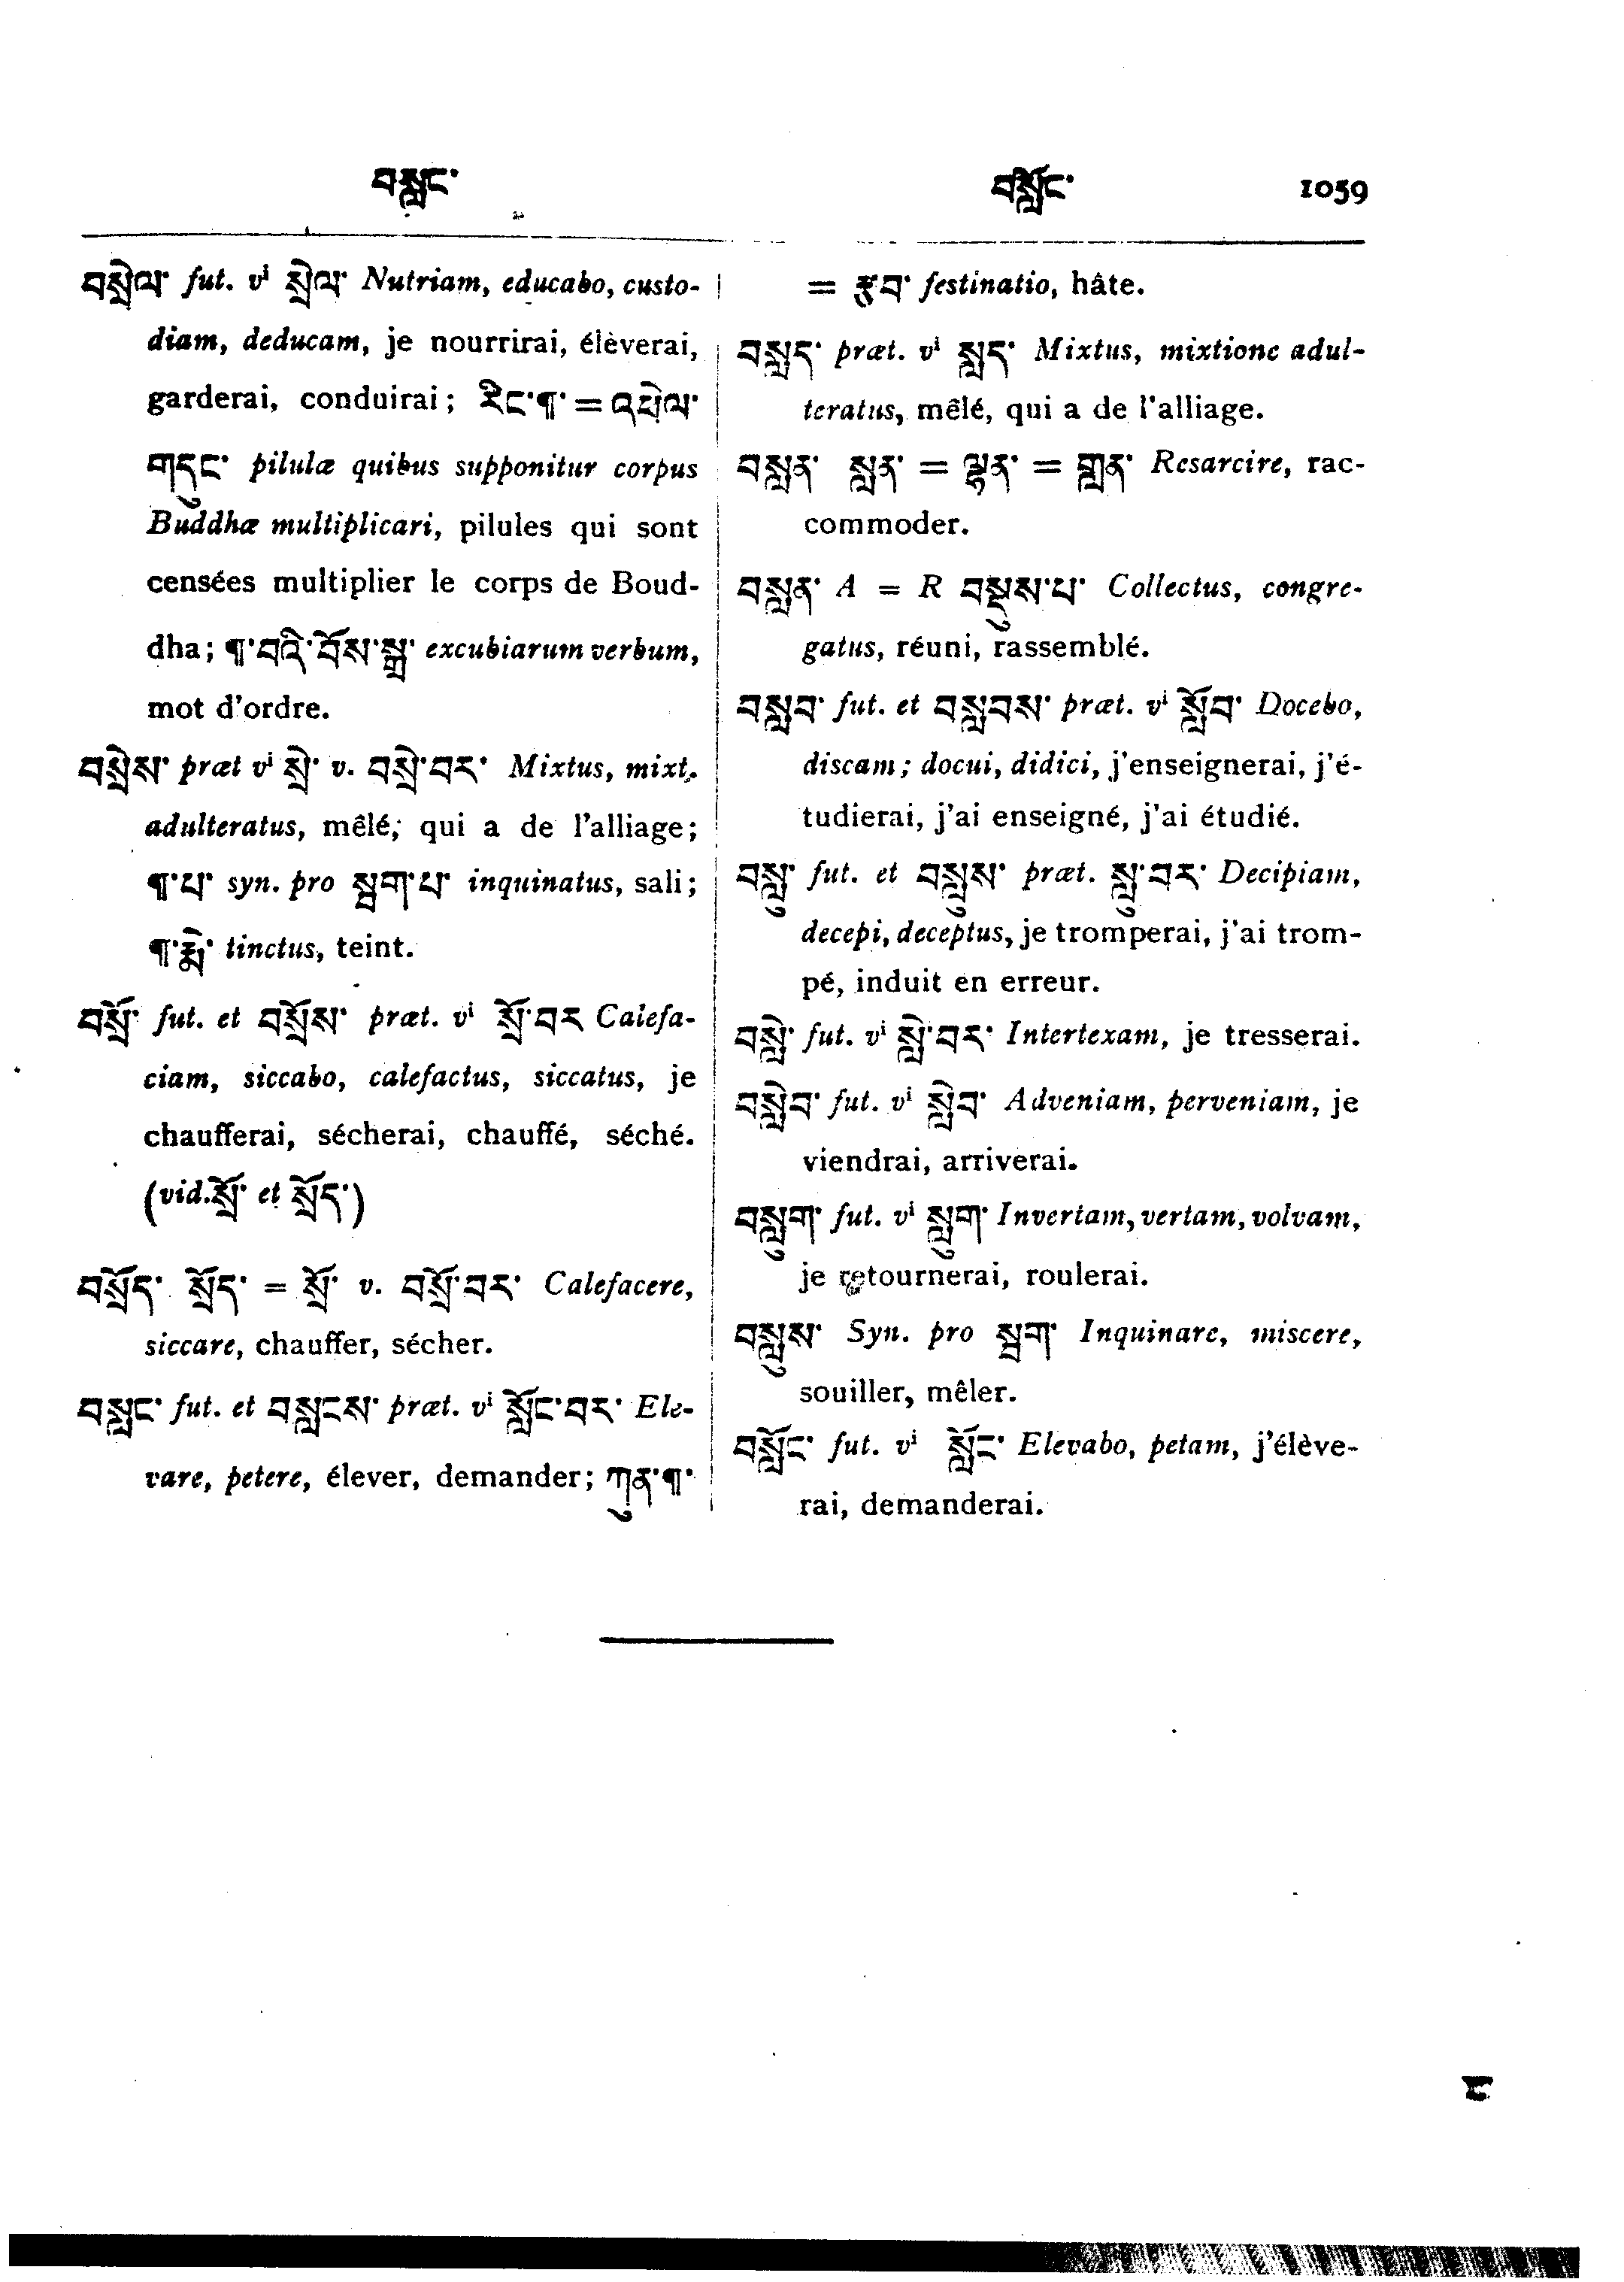 བསླང་
བསློང་ 1059
བསྲེལ་ fut. vⁱ སྲེལ་ Nutriam, educabo, custo-
diam, deducam, je nourrirai, élèverai,
garderai, conduirai; རིང་¶་ = འཕེལ་
གདུང་ pilulæ quibus supponitur corpus
Buddhæ multiplicari, pilules qui sont
censées multiplier le corps de Boud-
dha; ¶་བའི་བོས་སྒྲ་ excubiarum verbum,
mot d'ordre.
བསྲེས་ præt vⁱ སྲེ་ v. བསྲེ་བར་ Mixtus, mixt.
adulteratus, mêlé, qui a de l'alliage;
¶་པ་ syn. pro སླག་པ་ inquinatus, sali;
¶་ tinctus, teint.
བསྲོ་ fut. et བསྲོས་ præt. vⁱ སྲོ་བར Calefa-
ciam, siccabo, calefactus, siccatus, je
chaufferai, sécherai, chauffé, séché.
(vid. སྲོ་ et སྲོད་)
བསྲོད་ སྲོད་ = སྲོ་ v. བསྲོ་བར་ Calefacere,
siccare, chauffer, sécher.
བསླང་ fut. et བསླངས་ præt. vⁱ སློང་བར་ Ele-
vare, petere, élever, demander; ཀུན་¶་
= རྟབ་ festinatio, hâte.
བསླད་ præt. vⁱ སླད་ Mixtus, mixtione adul-
teratus, mêlé, qui a de l'alliage.
བསླན་ སླན་ = ལྷན་ = གླན་ Resarcire, rac-
commoder.
བསླན་ A = R བསྡུས་པ་ Collectus, congre-
gatus, réuni, rassemblé.
བསླབ་ fut. et བསླབས་ præt. vⁱ སློབ་ Docebo,
discam; docui, didici, j'enseignerai, j'é-
tudierai, j'ai enseigné, j'ai étudié.
བསླུ་ fut. et བསླུས་ præt. སླུ་བར་ Decipiam,
decepi, deceptus, je tromperai, j'ai trom-
pé, induit en erreur.
བསླེ་ fut. vⁱ སླེ་བར་ Intertexam, je tresserai.
བསླེབ་ fut. vⁱ སླེབ་ Adveniam, perveniam, je
viendrai, arriverai.
བསླུག་ fut. vⁱ སླུག་ Invertam, vertam, volvam,
je retournerai, roulerai.
བསླུས་ Syn. pro སླག་ Inquinare, miscere,
souiller, mêler.
བསློང་ fut. vⁱ སློང་ Elevabo, petam, j'élève-
rai, demanderai.